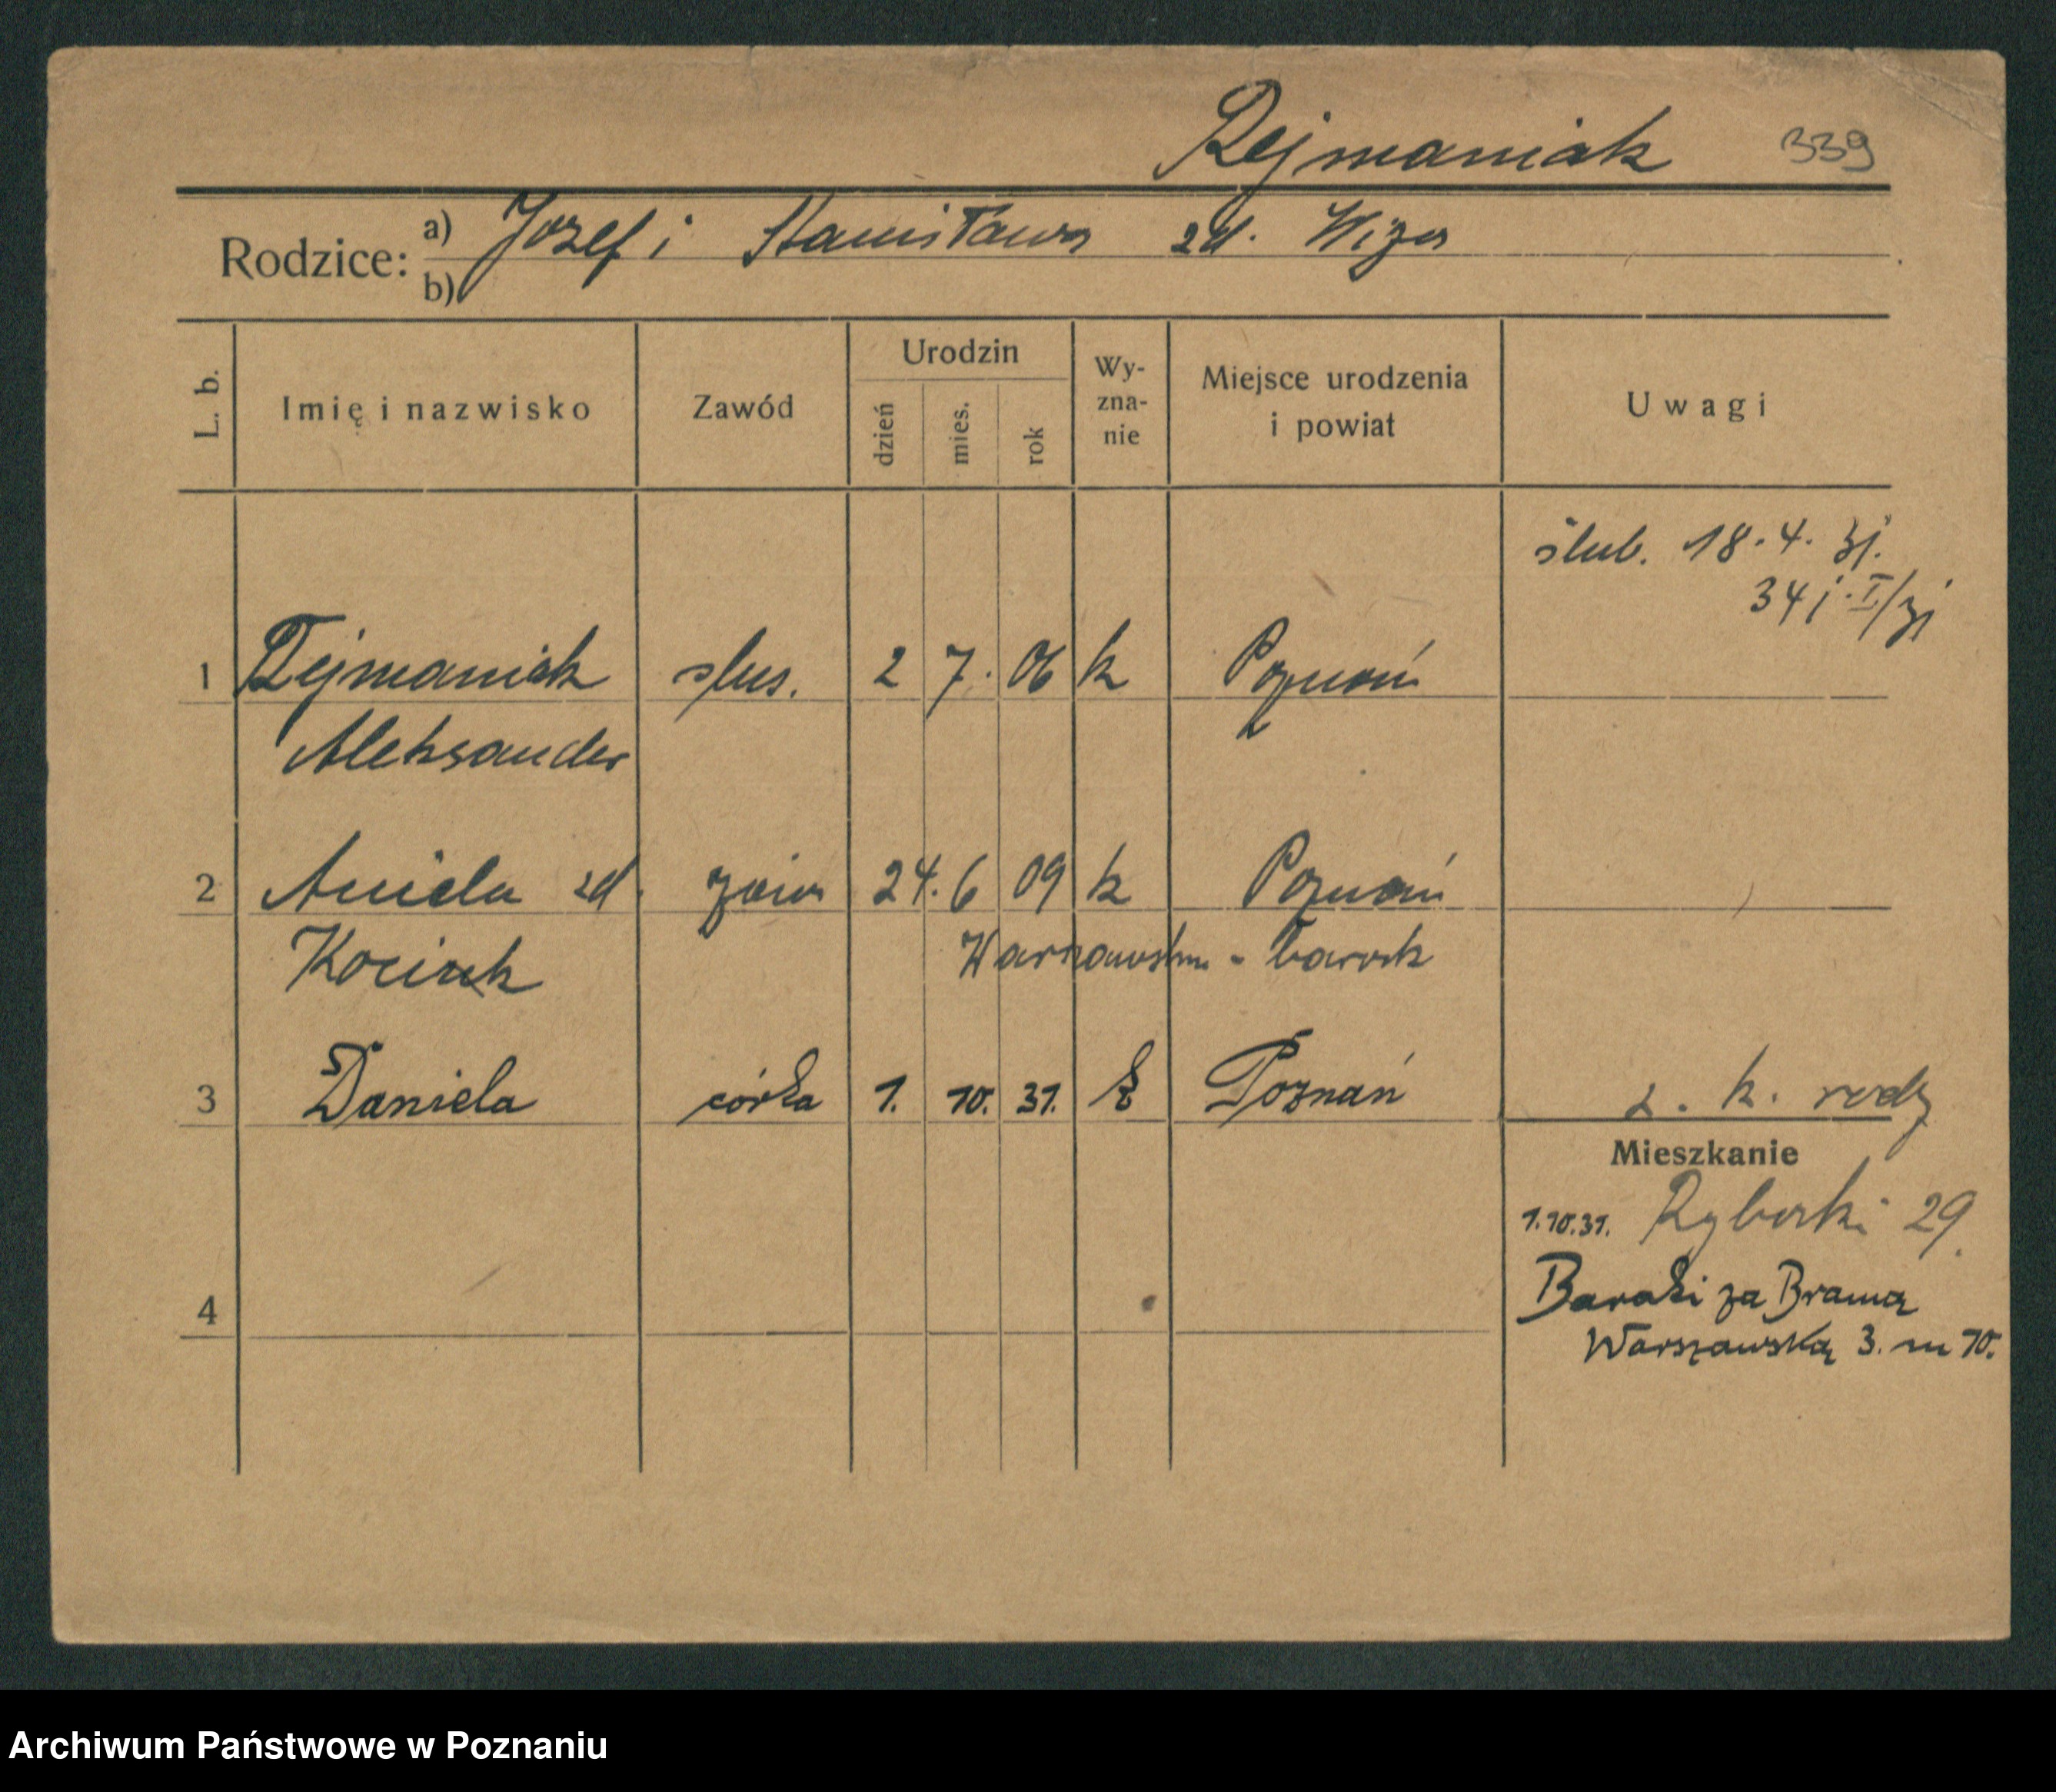 Rejmaniak 339
Rodzice: a) Józef i Stanisława zd. Wiza
b)
L. b. Imię i nazwisko Zawód Urodzin dzień mies. rok Wy-zna-nie Miejsce urodzenia i powiat Uwagi
ślub. 18. 4. 31.
341. I/31
1 Rejmaniak ślus. 2 7. 06 k Poznań
Aleksander
2 Aniela zd. żona 24. 6 09 k Poznań
Kociak Warszawska - barak
3 Daniela córka 1. 10. 31. k Poznań z. k. rodz
Mieszkanie
1.10.31. Rybaki 29.
Baraki za Bramą
4
Warszawską 3. m 10.
Archiwum Państwowe w Poznaniu